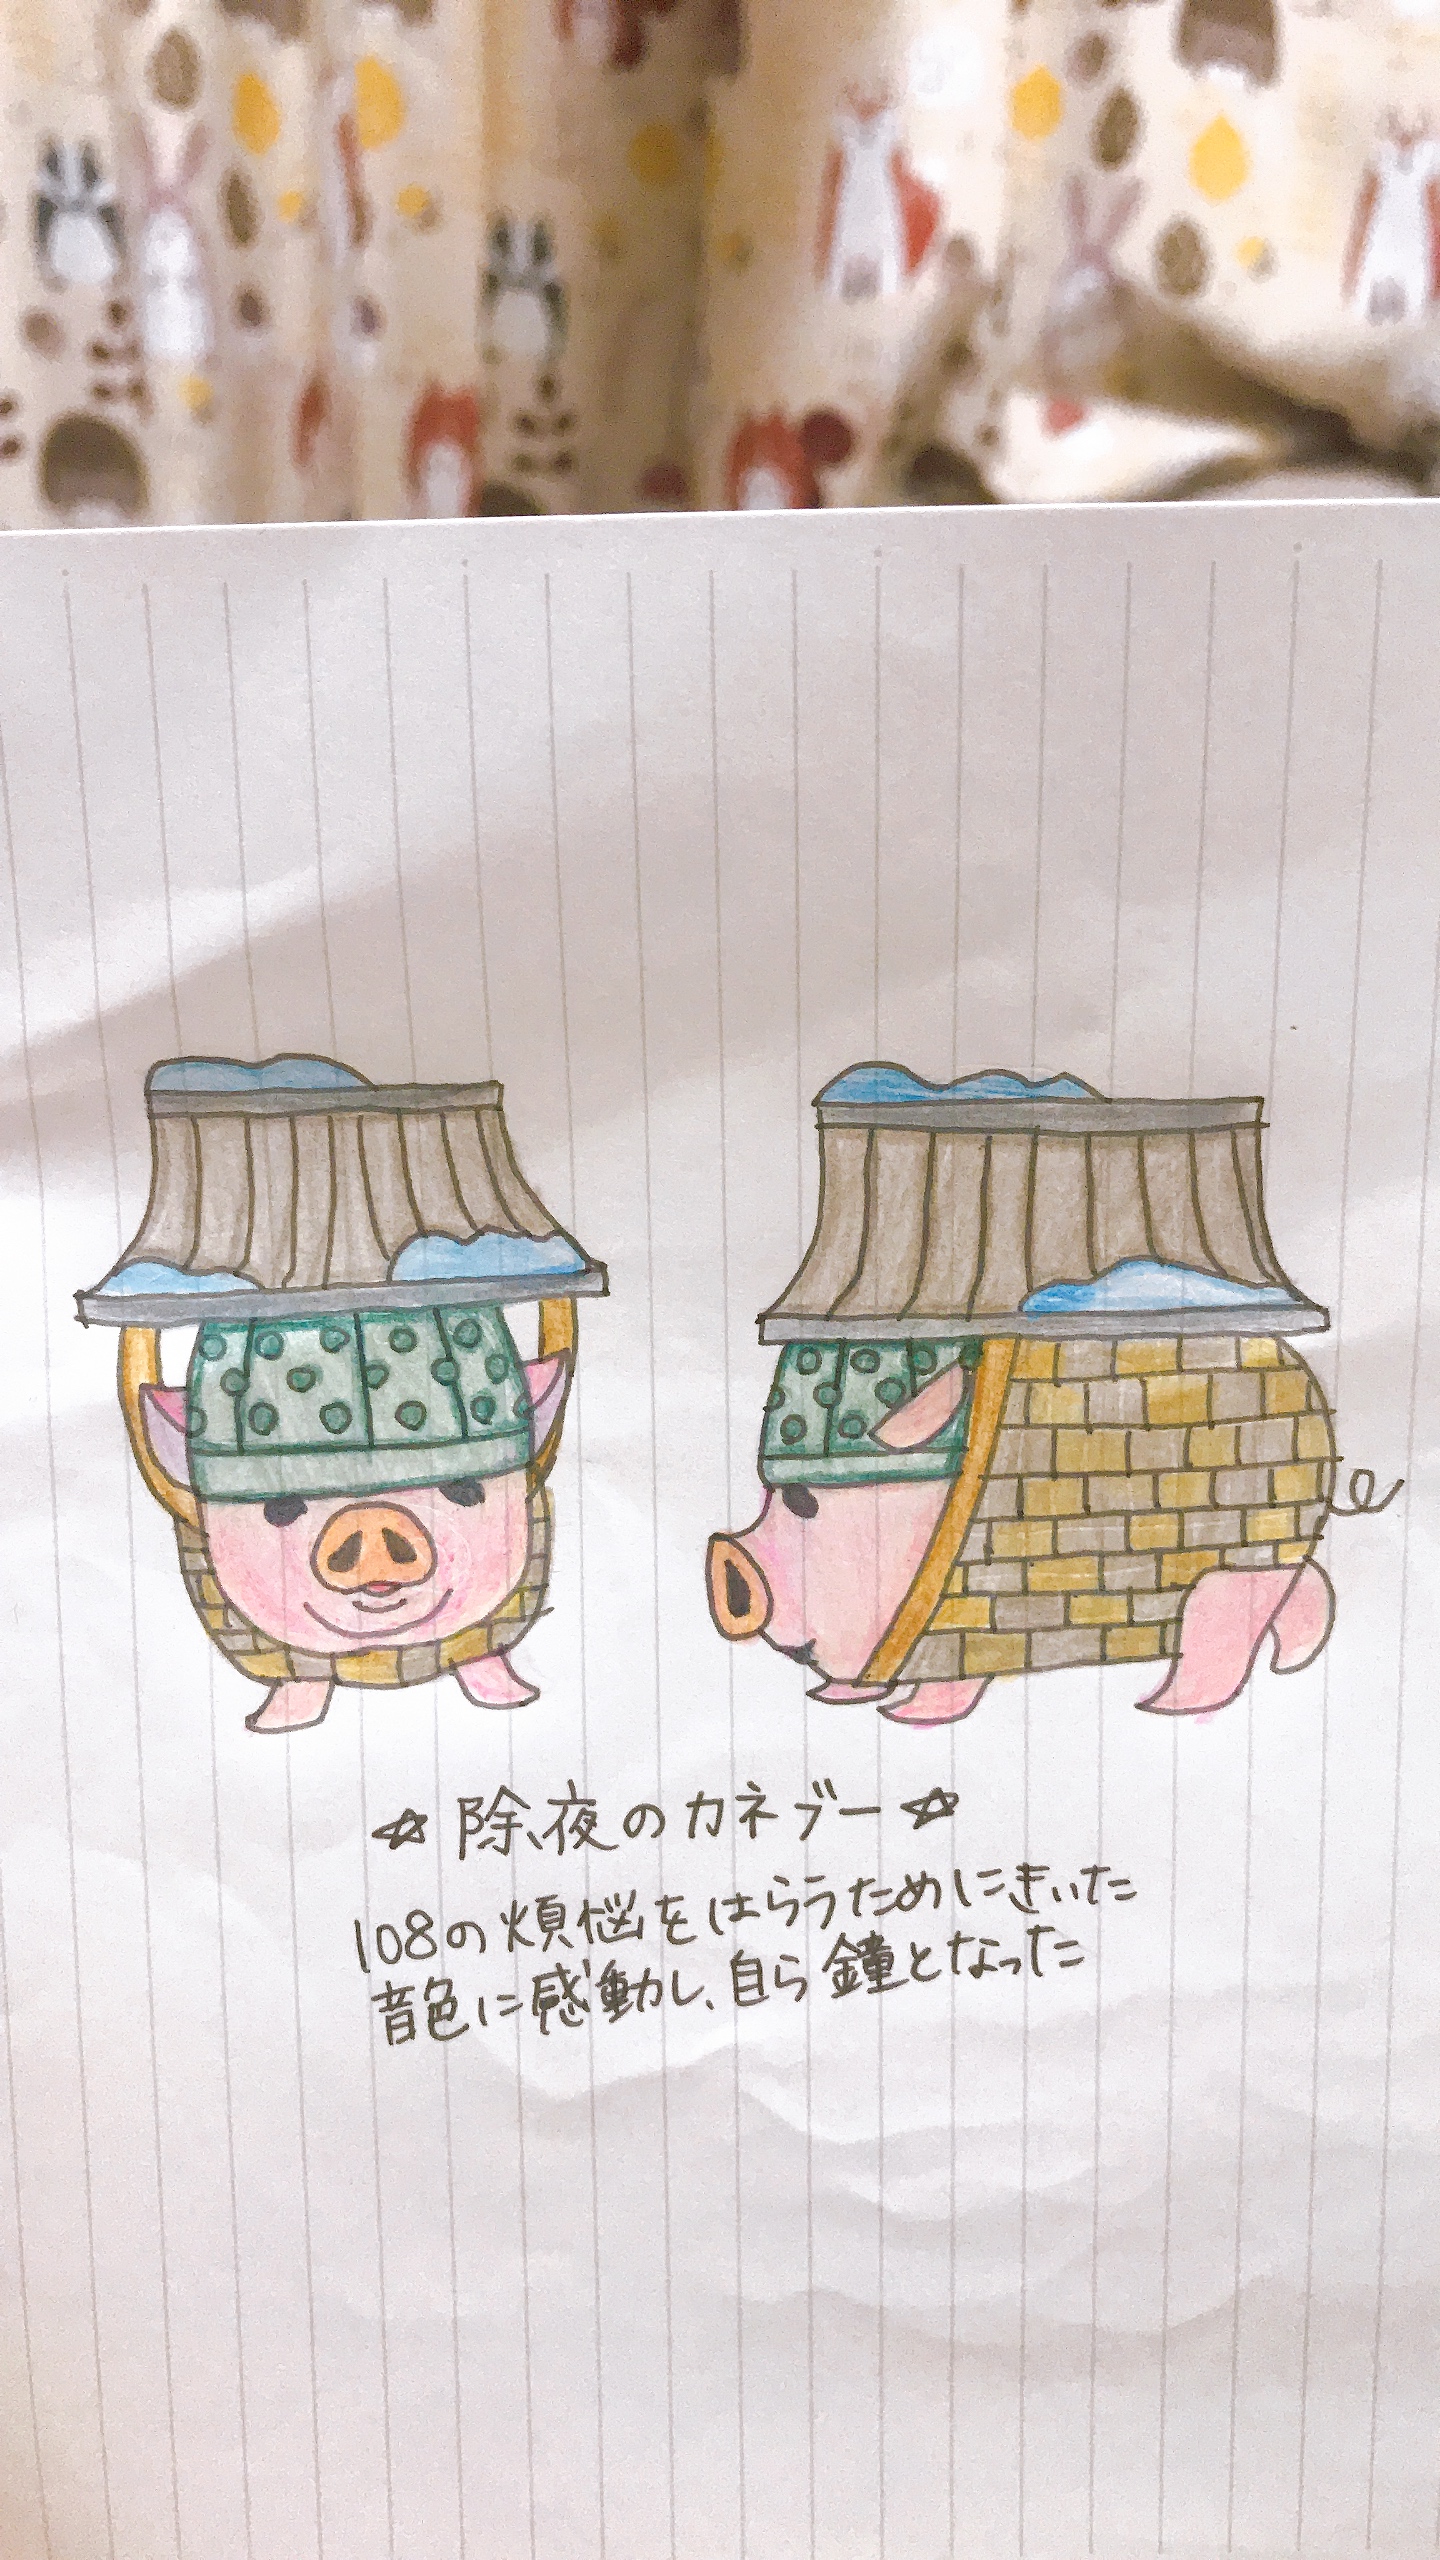 ☆除夜のカネブー☆
108の煩悩をはらうためにきいた
音色に感動し、自ら鐘となった